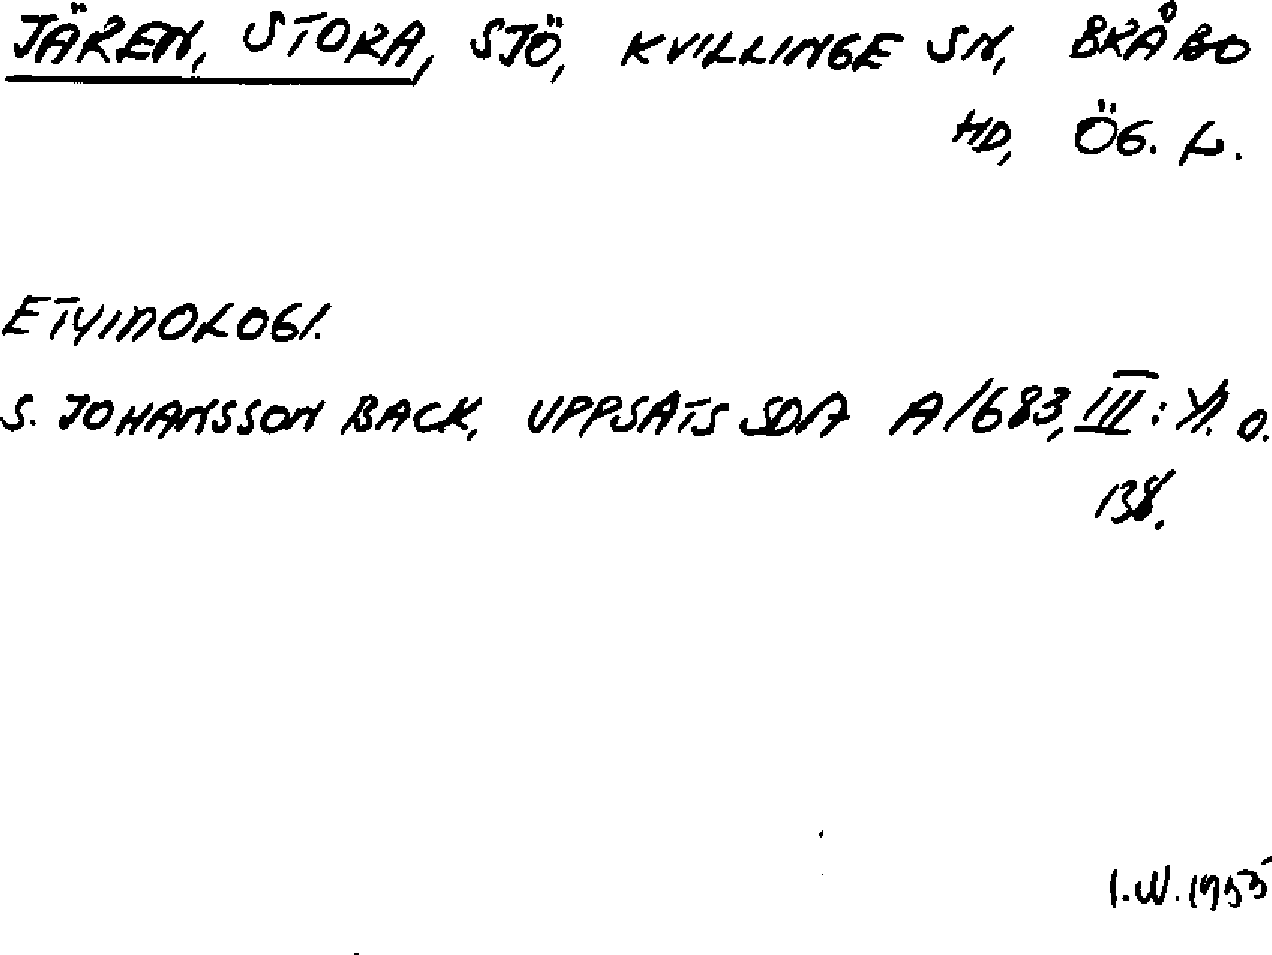 JÄREN, STORA, SJÖ, KVILLINGE SN, BRÅBO
HD, ÖG. L.
ETYMOLOGI.
S. JOHANSSON BACK, UPPSATS SDA A/683, III: o.
138.
I.W. 1955